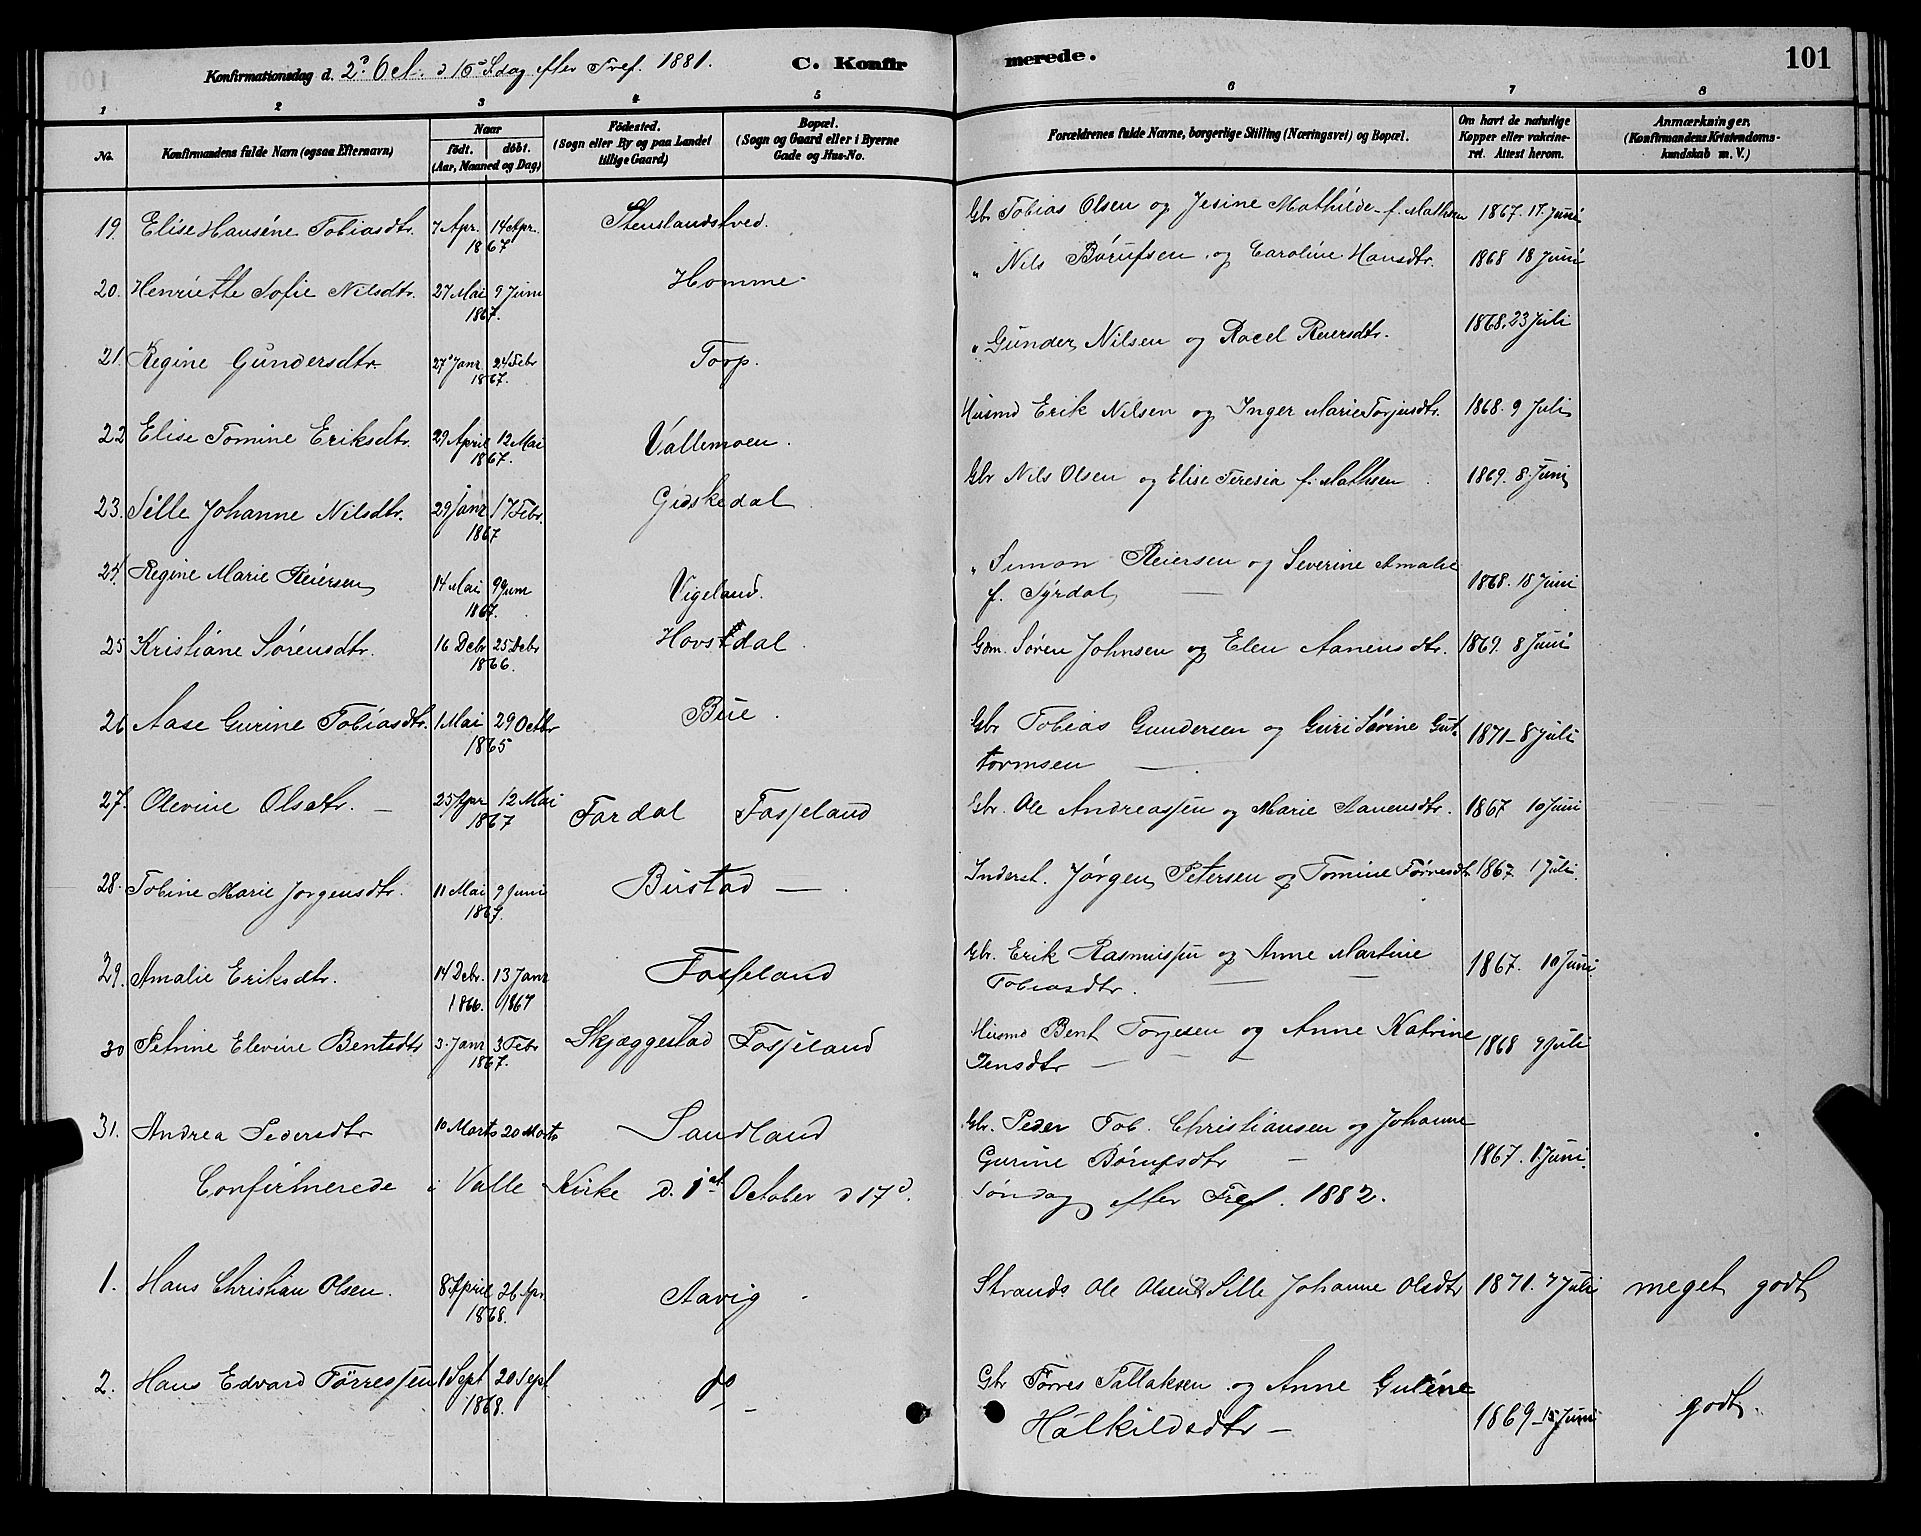 Konfirmationsdag d. 2den Oct. d 16de Sdag efter Tref. 1881.
C. Konfirmerede.
101
1 2 3 4 5 6 7 8
No.
Konfirmandens fulde Navn (ogsaa Efternavn)
Naar født. døbt. (Aar, Maaned og Dag)
Fødested. (Sogn eller By og paa Landet tillige Gaard)
Bopæl. (Sogn og Gaard eller i Byerne Gade og Hus-No.
Forældrenes fulde Navne, borgerlige Stilling (Næringsvei) og Bopæl.
Om havt de naturlige Kopper eller vakcineret. Attest herom.
Anmærkninger. (Konfirmandens Kristendomskundskab m. V.)
19. Elise Hansine Tobiasdtr. 7 Apr. 14 Apr. 1867 Stenslandstved. Gbr Tobias Olsen og Jesine Mathilde f. Mathsen 1867. 17. Juni
20. Henriette Sofie Nilsdtr. 27 Mai 9 Juni 1867. Homme " Nils Børufsen og Caroline Hansdtr. 1868 18 Juni
21. Regine Gundersdtr. 27 Janr 24 Febr 1867. Torp. " Gunder Nilsen og Racel Reiersdtr. 1868. 23 Juli
22 Elise Tomine Eriksdtr. 29 April 12 Mai 1867. Vallemoen. Husmd Erik Nilsen og Inger Marie Torjusdtr. 1868. 9 Juli
23. Sille Johanne Nilsdtr. 29 Janr 17 Febr. 1867 Gidskedal Gbr Nils Olsen og Elise Teresia f. Mathsen 1869. 8. Juni
24. Regine Marie Reiersen 14 Mai 9 Juni 1867. Vigeland. " Simon Reiersen og Severine Amalie
f. Syrdal 1868. 18 Juni
25 Kristiane Sørensdtr. 16 Debr 25 Debr 1866. Hovstdal. Gdm. Søren Johnsen og Elen Aanensdtr. 1869. 8 Juni
26 Aase Gurine Tobiasdtr. 1 Mai 29 Octbr 1865 Büe. Gbr Tobias Gundersen og Guri Sørine Gut-
tormsen 1871 - 8 Juli
27. Olevine Olsdtr. — 25 Apr 12 Mai 1867 Fardal Fosseland Gbr. Ole Andreassen og Marie Aanensdtr. 1867 10 Juni
28. Tobine Marie Jørgensdtr. 11 Mai 9 Juni 1867. Bustad — Inderst. Jørgen Petersen og Tomine Tørresdtr 1867 1 Juli.
29. Amalie Eriksdtr. 14 Debr. 1866. 13 Janr 1867 Fosseland Gbr. Erik Rasmussen og Anne Martine
Tobiasdtr. 1867. 10 Juni.
30 Petrine Elevine Bentsdtr 3. Janr 3 Febr 1867. Skjæggestad Fosseland Husmd Bent Torjesen og Anne Katrine
Jensdtr — 1868 9 Juli
31. Andrea Pedersdtr 10 Marts 20 Marts Sandland Gbr. Peder Tob. Christiansen og Johanne
Gurine Børufsdtr — 1867. 1. Juni.
Confirmerede i Valle Kirke d. 1st October d 17d. Søndag efter Tref. 1882.
1. Hans Christian Olsen. 8 April 26 Apr. 1868. Aavig Strands. Ole Olsen & Sille Johanne Olsdtr 1871. 7 Juli meget godt
2. Hans Edvard Tørressen 1 Sept 20 Sept 1868. do — Gbr Tørres Tallaksen og Anne Guline
Halkildsdtr — 1869 - 15 Juni godt.